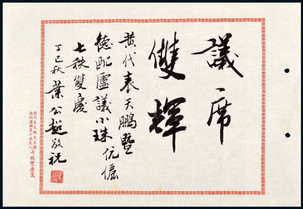 議席
雙輝
黄代表天鵬暨
德配盧議小珠伉儷
七秩雙慶
丁巳秋葉公超敬祝